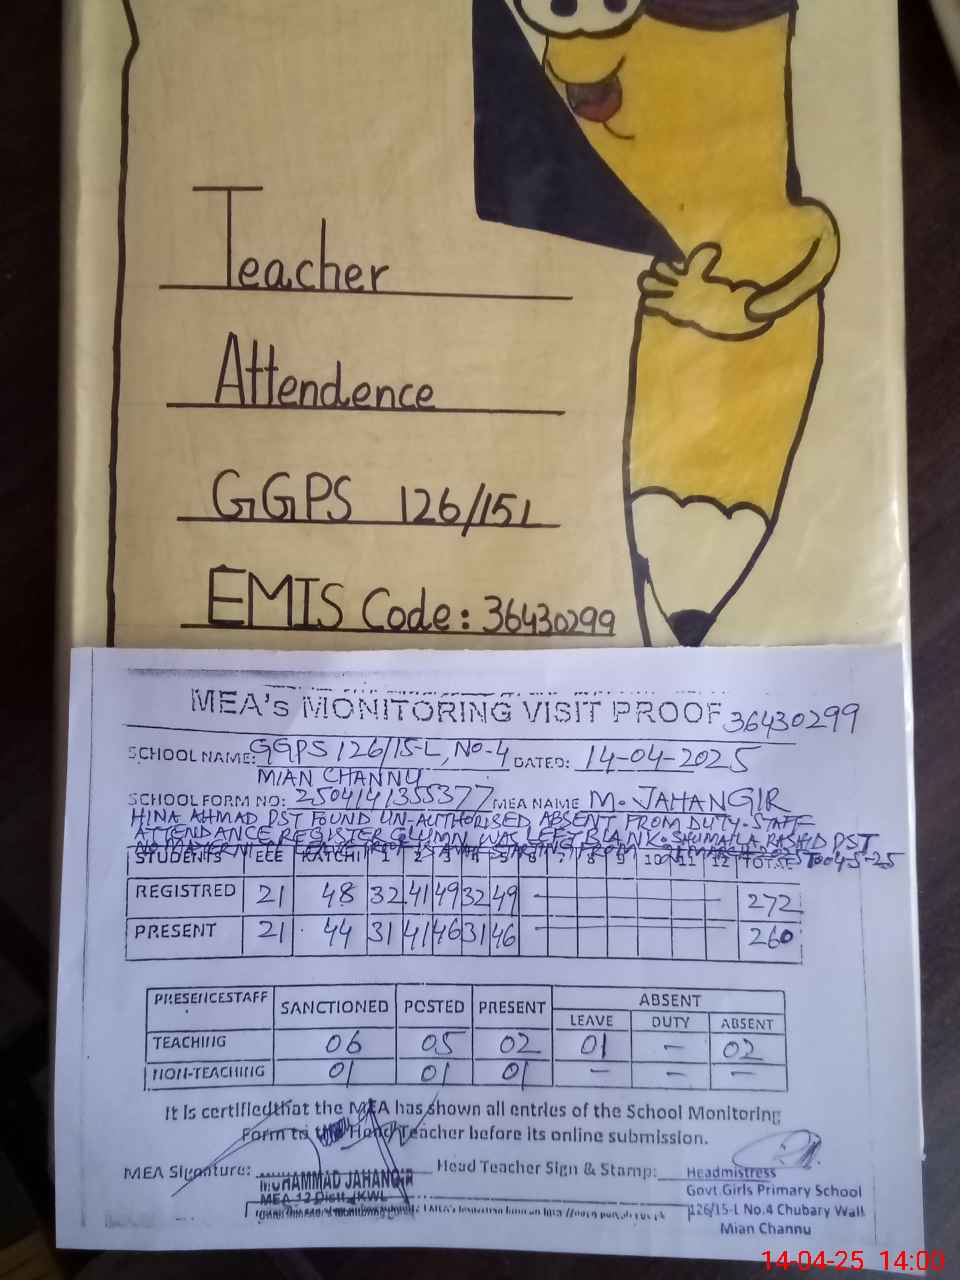 Teacher
Attendence
GGPS 126/15L
EMIS Code: 36430299
MEA's MONITORING VISIT PROOF 36430299
SCHOOL NAME: GGPS 126/15-L, No-4 DATED: 14-04-2025
MIAN CHANNU
SCHOOL FORM NO: 2504141355377 MEA NAME M. JAHANGIR
HINA AHMAD PST FOUND UN-AUTHORISED ABSENT FROM DUTY. STAFF
ATTENDANCE REGISTER CLUMN WAS LEFT BLANK. SHUMAILA RASHID PST
STUDENTS ECE KATCHI 1 2 3 4 5 6 7 8 9 10 11 12 TOTAL
REGISTRED 21 48 32 41 49 32 49 272
PRESENT 21 44 31 41 46 31 46 260
PRESENCESTAFF SANCTIONED POSTED PRESENT ABSENT
LEAVE DUTY ABSENT
TEACHING 06 05 02 01 - 02
NON-TEACHING 01 01 01 - - -
It is certifiedthat the MEA has shown all entries of the School Monitoring
Form to the Head Teacher before its online submission.
MEA Signature: Head Teacher Sign & Stamp:
MUHAMMAD JAHANGIR
MEA 12 Distt. KWL
Headmistress
Govt.Girls Primary School
126/15-L No.4 Chubary Wall
Mian Channu
14-04-25 14:00